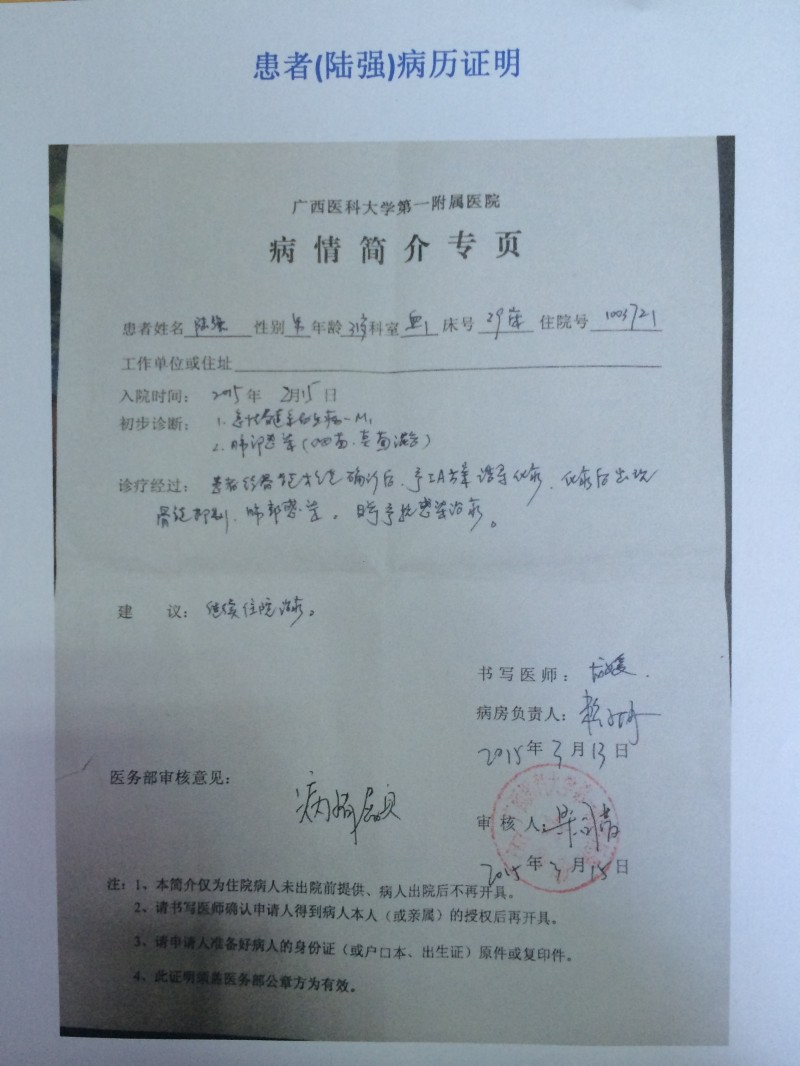 患者(陆强)病历证明
广西医科大学第一附属医院
病情简介专页
患者姓名 陆强 性别 男 年龄 31岁 科室 血1 床号 29床 住院号 1003721
工作单位或住址
入院时间: 2015年 2月15日
初步诊断: 1.急性髓系白血病-M
2.肺部感染(细菌、真菌混合)
诊疗经过: 患者经骨髓 确诊后,予IA方案诱导化疗,化疗后出现
骨髓抑制,肺部感染。 予抗感染治疗。
建 议: 继续住院治疗。
书写医师:
病房负责人:
2015年3月13日
医务部审核意见:
病情属实
审核人:
2015年3月15日
注: 1、本简介仅为住院病人未出院前提供、病人出院后不再开具。
2、请书写医师确认申请人得到病人本人(或亲属)的授权后再开具。
3、请申请人准备好病人的身份证(或户口本、出生证)原件或复印件。
4、此证明须盖医务部公章方为有效。